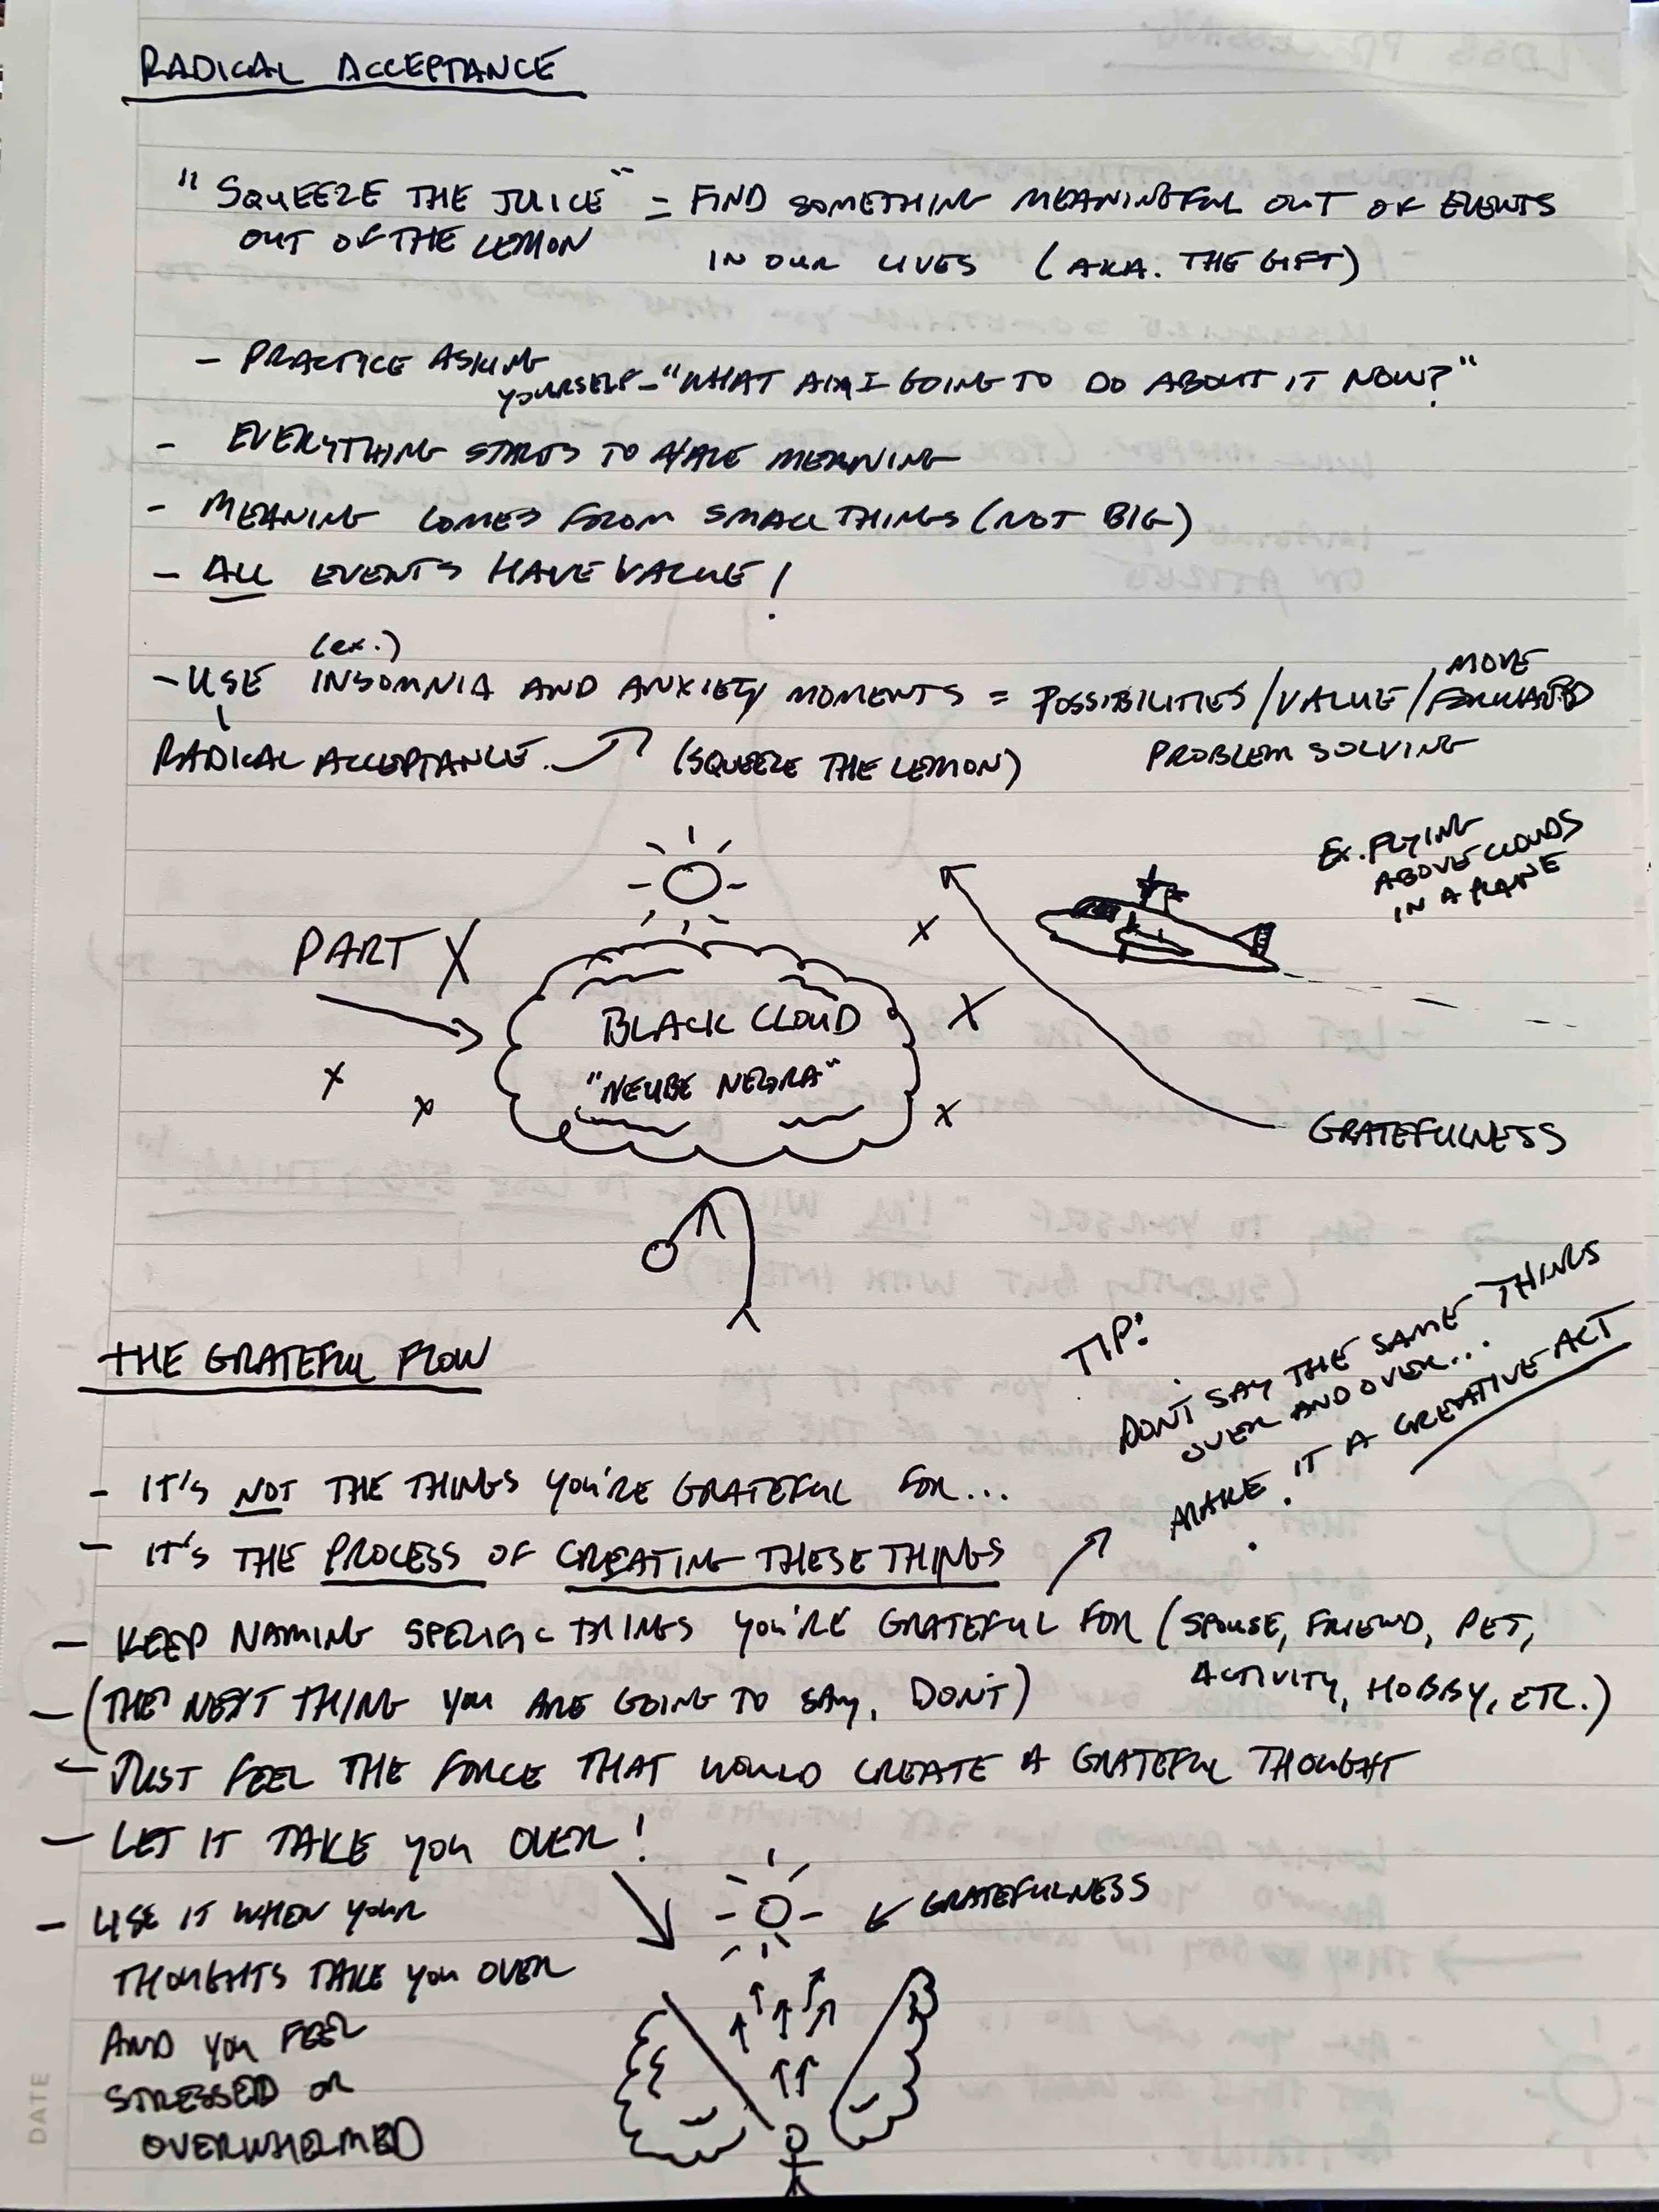 RADICAL ACCEPTANCE
"SQUEEZE THE JUICE" = FIND SOMETHING MEANINGFUL OUT OF EVENTS
OUT OF THE LEMON IN OUR LIVES (AKA. THE GIFT)
- PRACTICE ASKING
YOURSELF - "WHAT AM I GOING TO DO ABOUT IT NOW?"
- EVERYTHING STARTS TO HAVE MEANING
- MEANING COMES FROM SMALL THINGS (NOT BIG)
- ALL EVENTS HAVE VALUE!
(ex.)
- USE INSOMNIA AND ANXIETY MOMENTS = POSSIBILITIES/VALUE/MOVE FORWARD
RADICAL ACCEPTANCE. (SQUEEZE THE LEMON) PROBLEM SOLVING
EX. FLYING
ABOVE CLOUDS
IN A PLANE
PART X
X
X
BLACK CLOUD
"NEUBE NEGRA"
X
X
X
GRATEFULNESS
THE GRATEFUL FLOW
TIP:
DON'T SAY THE SAME THINGS
OVER AND OVER...
MAKE IT A CREATIVE ACT
- IT'S NOT THE THINGS YOU'RE GRATEFUL FOR...
- IT'S THE PROCESS OF CREATING THESE THINGS
- KEEP NAMING SPECIFIC THINGS YOU'RE GRATEFUL FOR (SPOUSE, FRIEND, PET,
ACTIVITY, HOBBY, ETC.)
- (THE NEXT THING YOU ARE GOING TO SAY, DON'T)
- JUST FEEL THE FORCE THAT WOULD CREATE A GRATEFUL THOUGHT
- LET IT TAKE YOU OVER!
GRATEFULNESS
- USE IT WHEN YOUR
THOUGHTS TAKE YOU OVER
AND YOU FEEL
STRESSED OR
OVERWHELMED
DATE